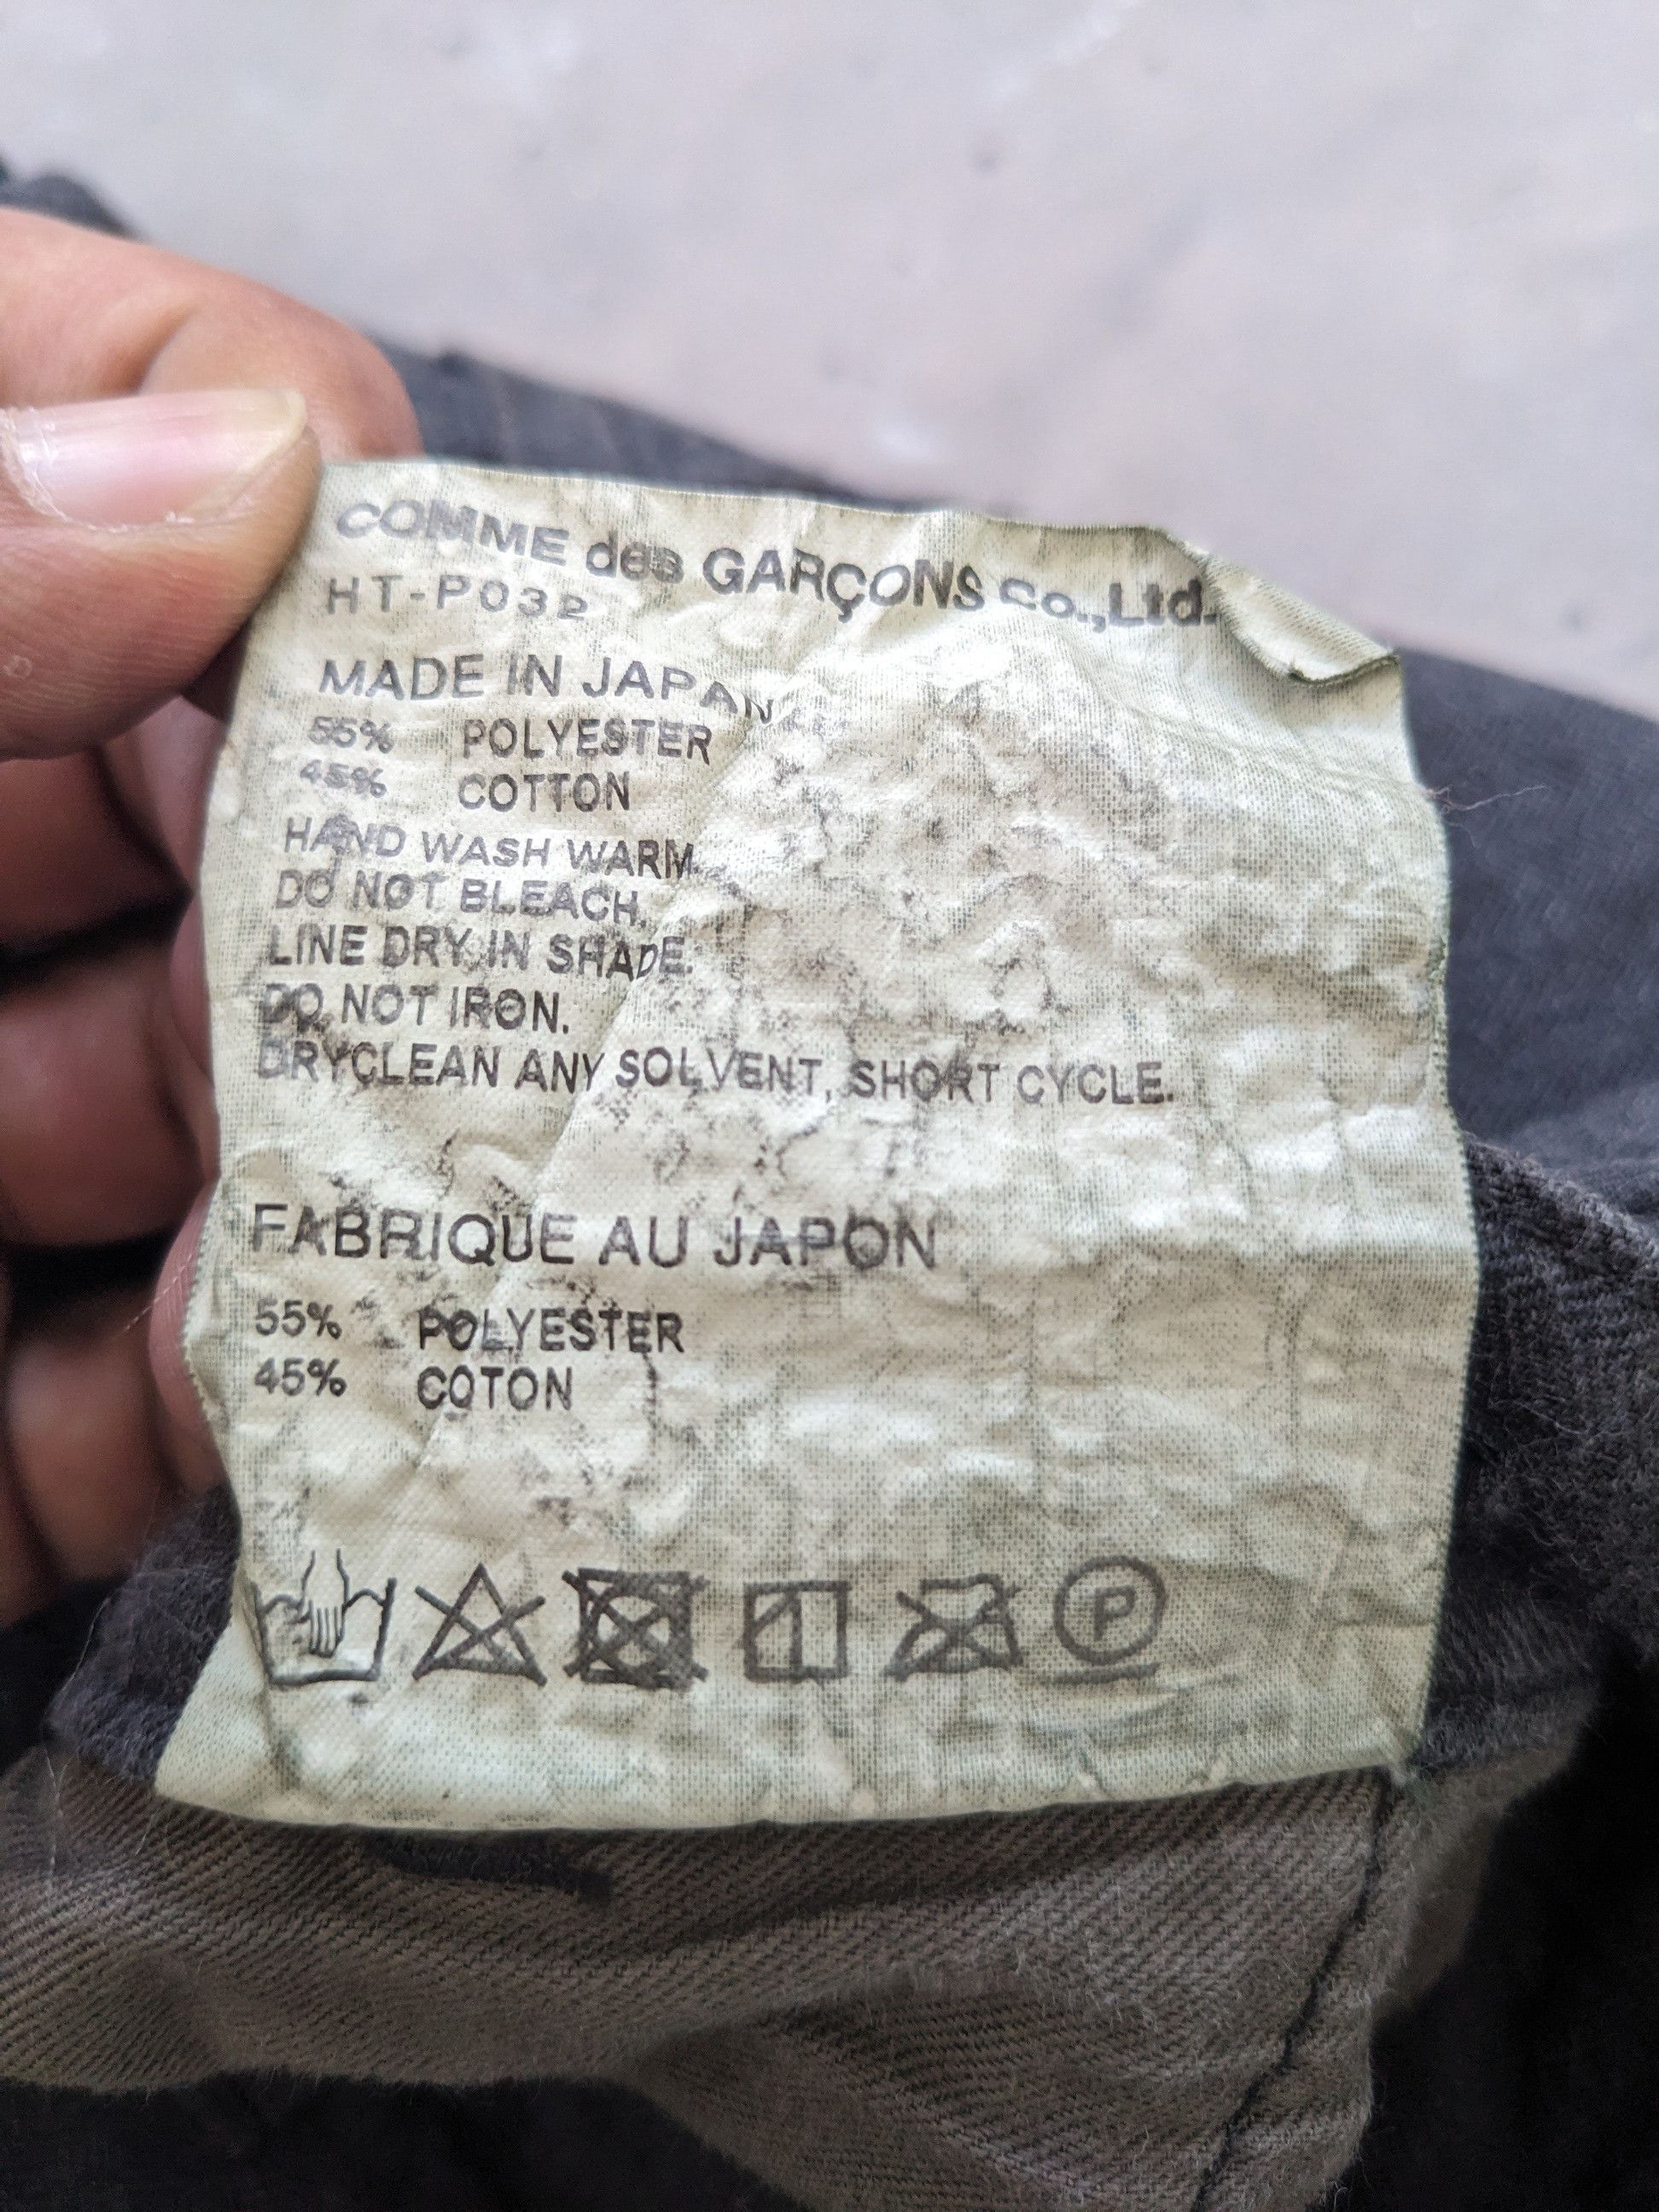 COMME des GARÇONS Co.,Ltd.
HT-P032
MADE IN JAPAN
55% POLYESTER
45% COTTON
HAND WASH WARM.
DO NOT BLEACH.
LINE DRY IN SHADE.
DO NOT IRON.
DRYCLEAN ANY SOLVENT, SHORT CYCLE.
FABRIQUE AU JAPON
55% POLYESTER
45% COTON
P